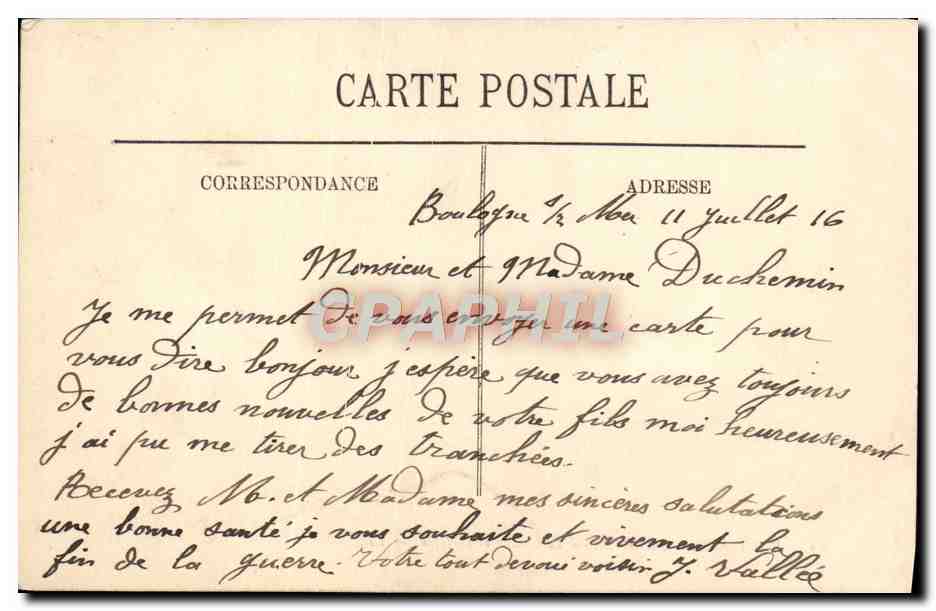 CARTE POSTALE
CORRESPONDANCE
ADRESSE
Boulogne s/ Mer 11 Juillet 16
Monsieur et Madame Duchemin
CPAPHIL
Je me permet de vous envoyer une carte pour
vous dire bonjour j'espère que vous avez toujours
de bonnes nouvelles de votre fils moi heureusement
j'ai pu me tirer des tranchées.
Recevez M. et Madame mes sincères salutations
une bonne santé je vous souhaite et vivement la
fin de la guerre. Votre tout devoué voisin J. Vallée